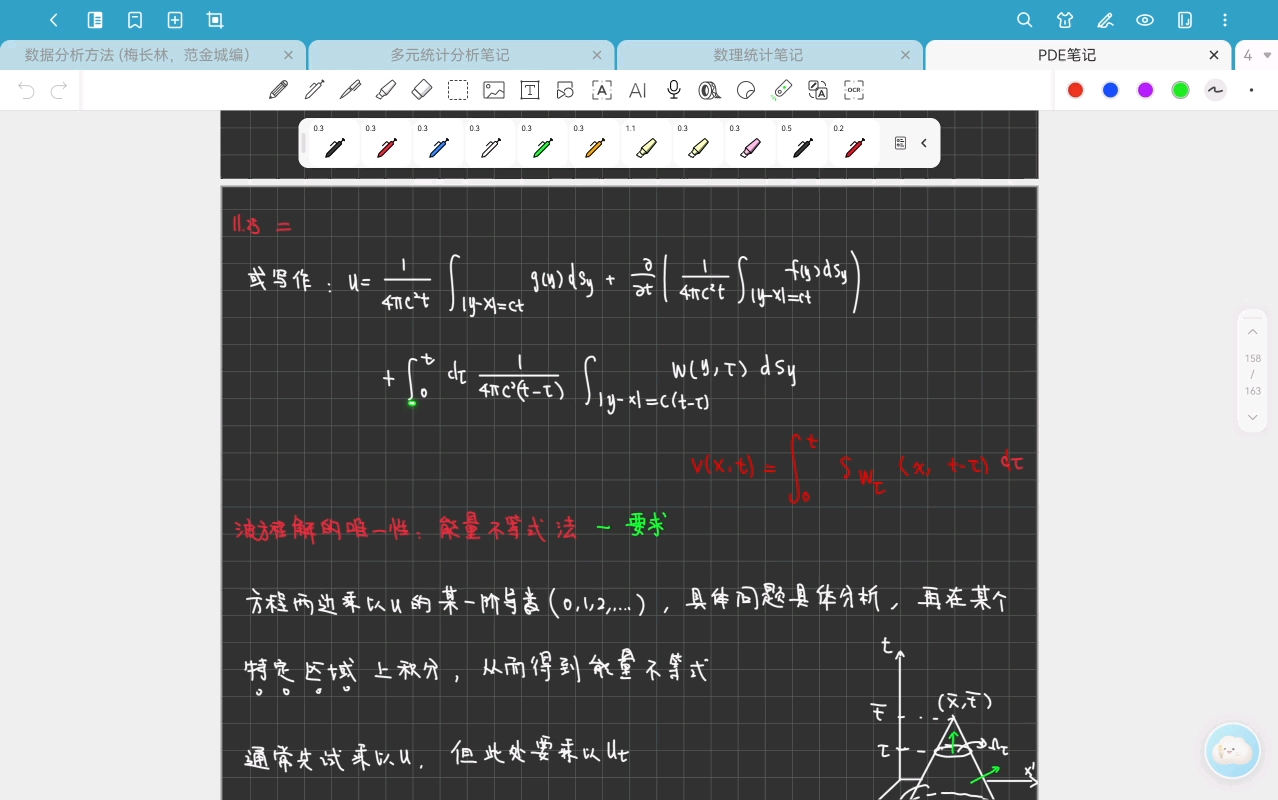 数据分析方法 (梅长林，范金城编)
多元统计分析笔记
数理统计笔记
PDE笔记
4
T A AI A OCR
0.3 0.3 0.3 0.3 0.3 0.3 1.1 0.3 0.3 0.5 0.2
=
或写作: u= 1/(4πc²t) ∫_{|y-x|=ct} g(y)dSy + ∂/∂t ( 1/(4πc²t) ∫_{|y-x|=ct} f(y)dSy )
+ ∫_0^t dτ 1/(4πc²(t-τ)) ∫_{|y-x|=c(t-τ)} w(y,τ) dSy
158
/
163
v(x,t) = ∫_0^t S_{wτ} (x, t-τ) dτ
波方程解的唯一性: 能量不等式法 - 要求
方程两边乘以u的某一阶导数(0,1,2,...), 具体问题具体分析, 再在某个
特定区域上积分, 从而得到能量不等式
通常先试乘以u, 但此处要乘以ut
t
(x̄,t̄)
t̄
τ
Ωτ
x'